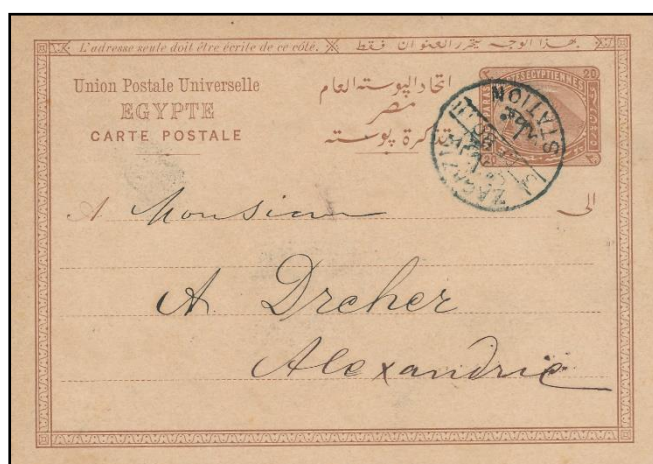 L'adresse seule doit être écrite de ce côté.
بهذا الوجه يتحرر العنوان فقط
Union Postale Universelle
EGYPTE
CARTE POSTALE
اتحاد البوسته العام
مصر
تذكرة بوسته
20
20
20
STATION
ZAGAZIG
A Monsieur
الى
A Dreher
Alexandrie